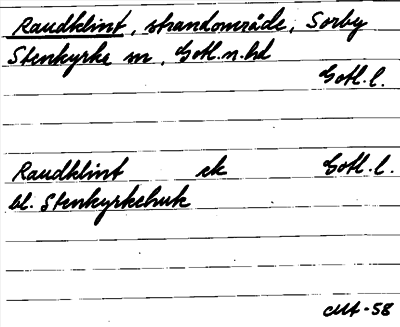 Raudklint, strandområde, Sorby
Stenkyrke sn, Gotl. n. hd
Gotl. l.
Raudklint ek Gotl. l.
bl. Stenkyrkehuk
-58